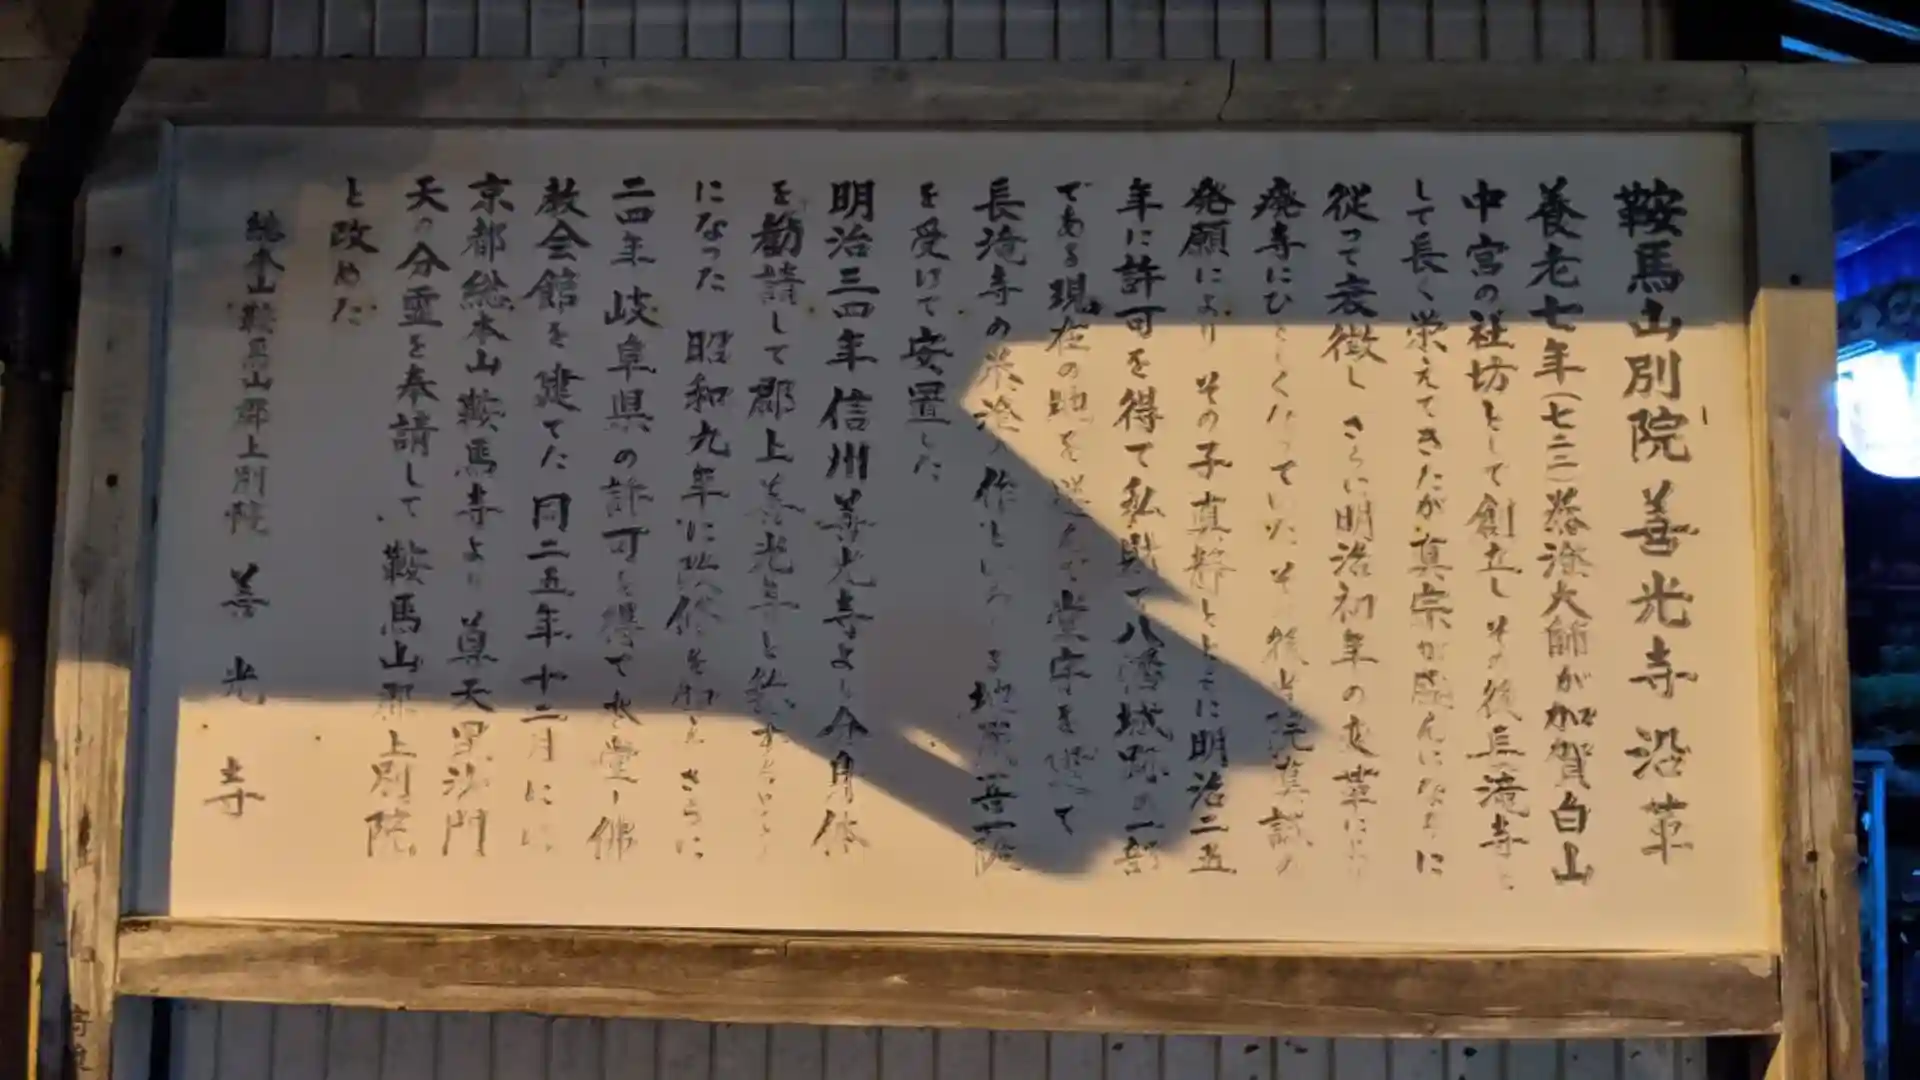 鞍馬山別院 善光寺 沿革
養老七年(七二三)泰澄大師が加賀白山
中宮の社坊として創立し その後 長滝寺と
して長く栄えてきたが 真宗が盛んになるに
従って衰微し さらに明治初年の変革により
廃寺にひとしくなっていた その後 院真誠の
発願により その子真静とともに明治二五
年に許可を得て私財で八幡城跡の一部
である現在の地を選んで堂宇を建て
長滝寺の泰澄の作といわれる地蔵菩薩
を受けて安置した
明治三四年 信州善光寺より分身体
を勧請して郡上善光寺と称する
になった 昭和九年に改修を加え さらに
二四年 岐阜県の許可を得て本堂
教会館を建てた 同二五年十二月に
京都総本山鞍馬寺より尊天 毘沙門
天の分霊を奉請して 鞍馬山郡上別院
と改めた
総本山 鞍馬山郡上別院 善光寺